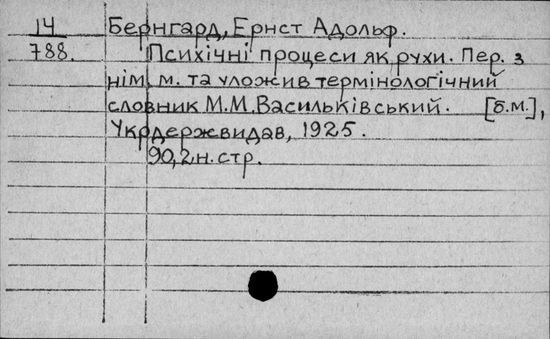 14 Бернгард, Ернст Адольф.
788. Психічні процеси як рухи. Пер. з
нім. м. та уложив термінологічний
словник М.М. Васильківський. [б.м.],
Укрдержвидав, 1925.
90,2.н.стр.